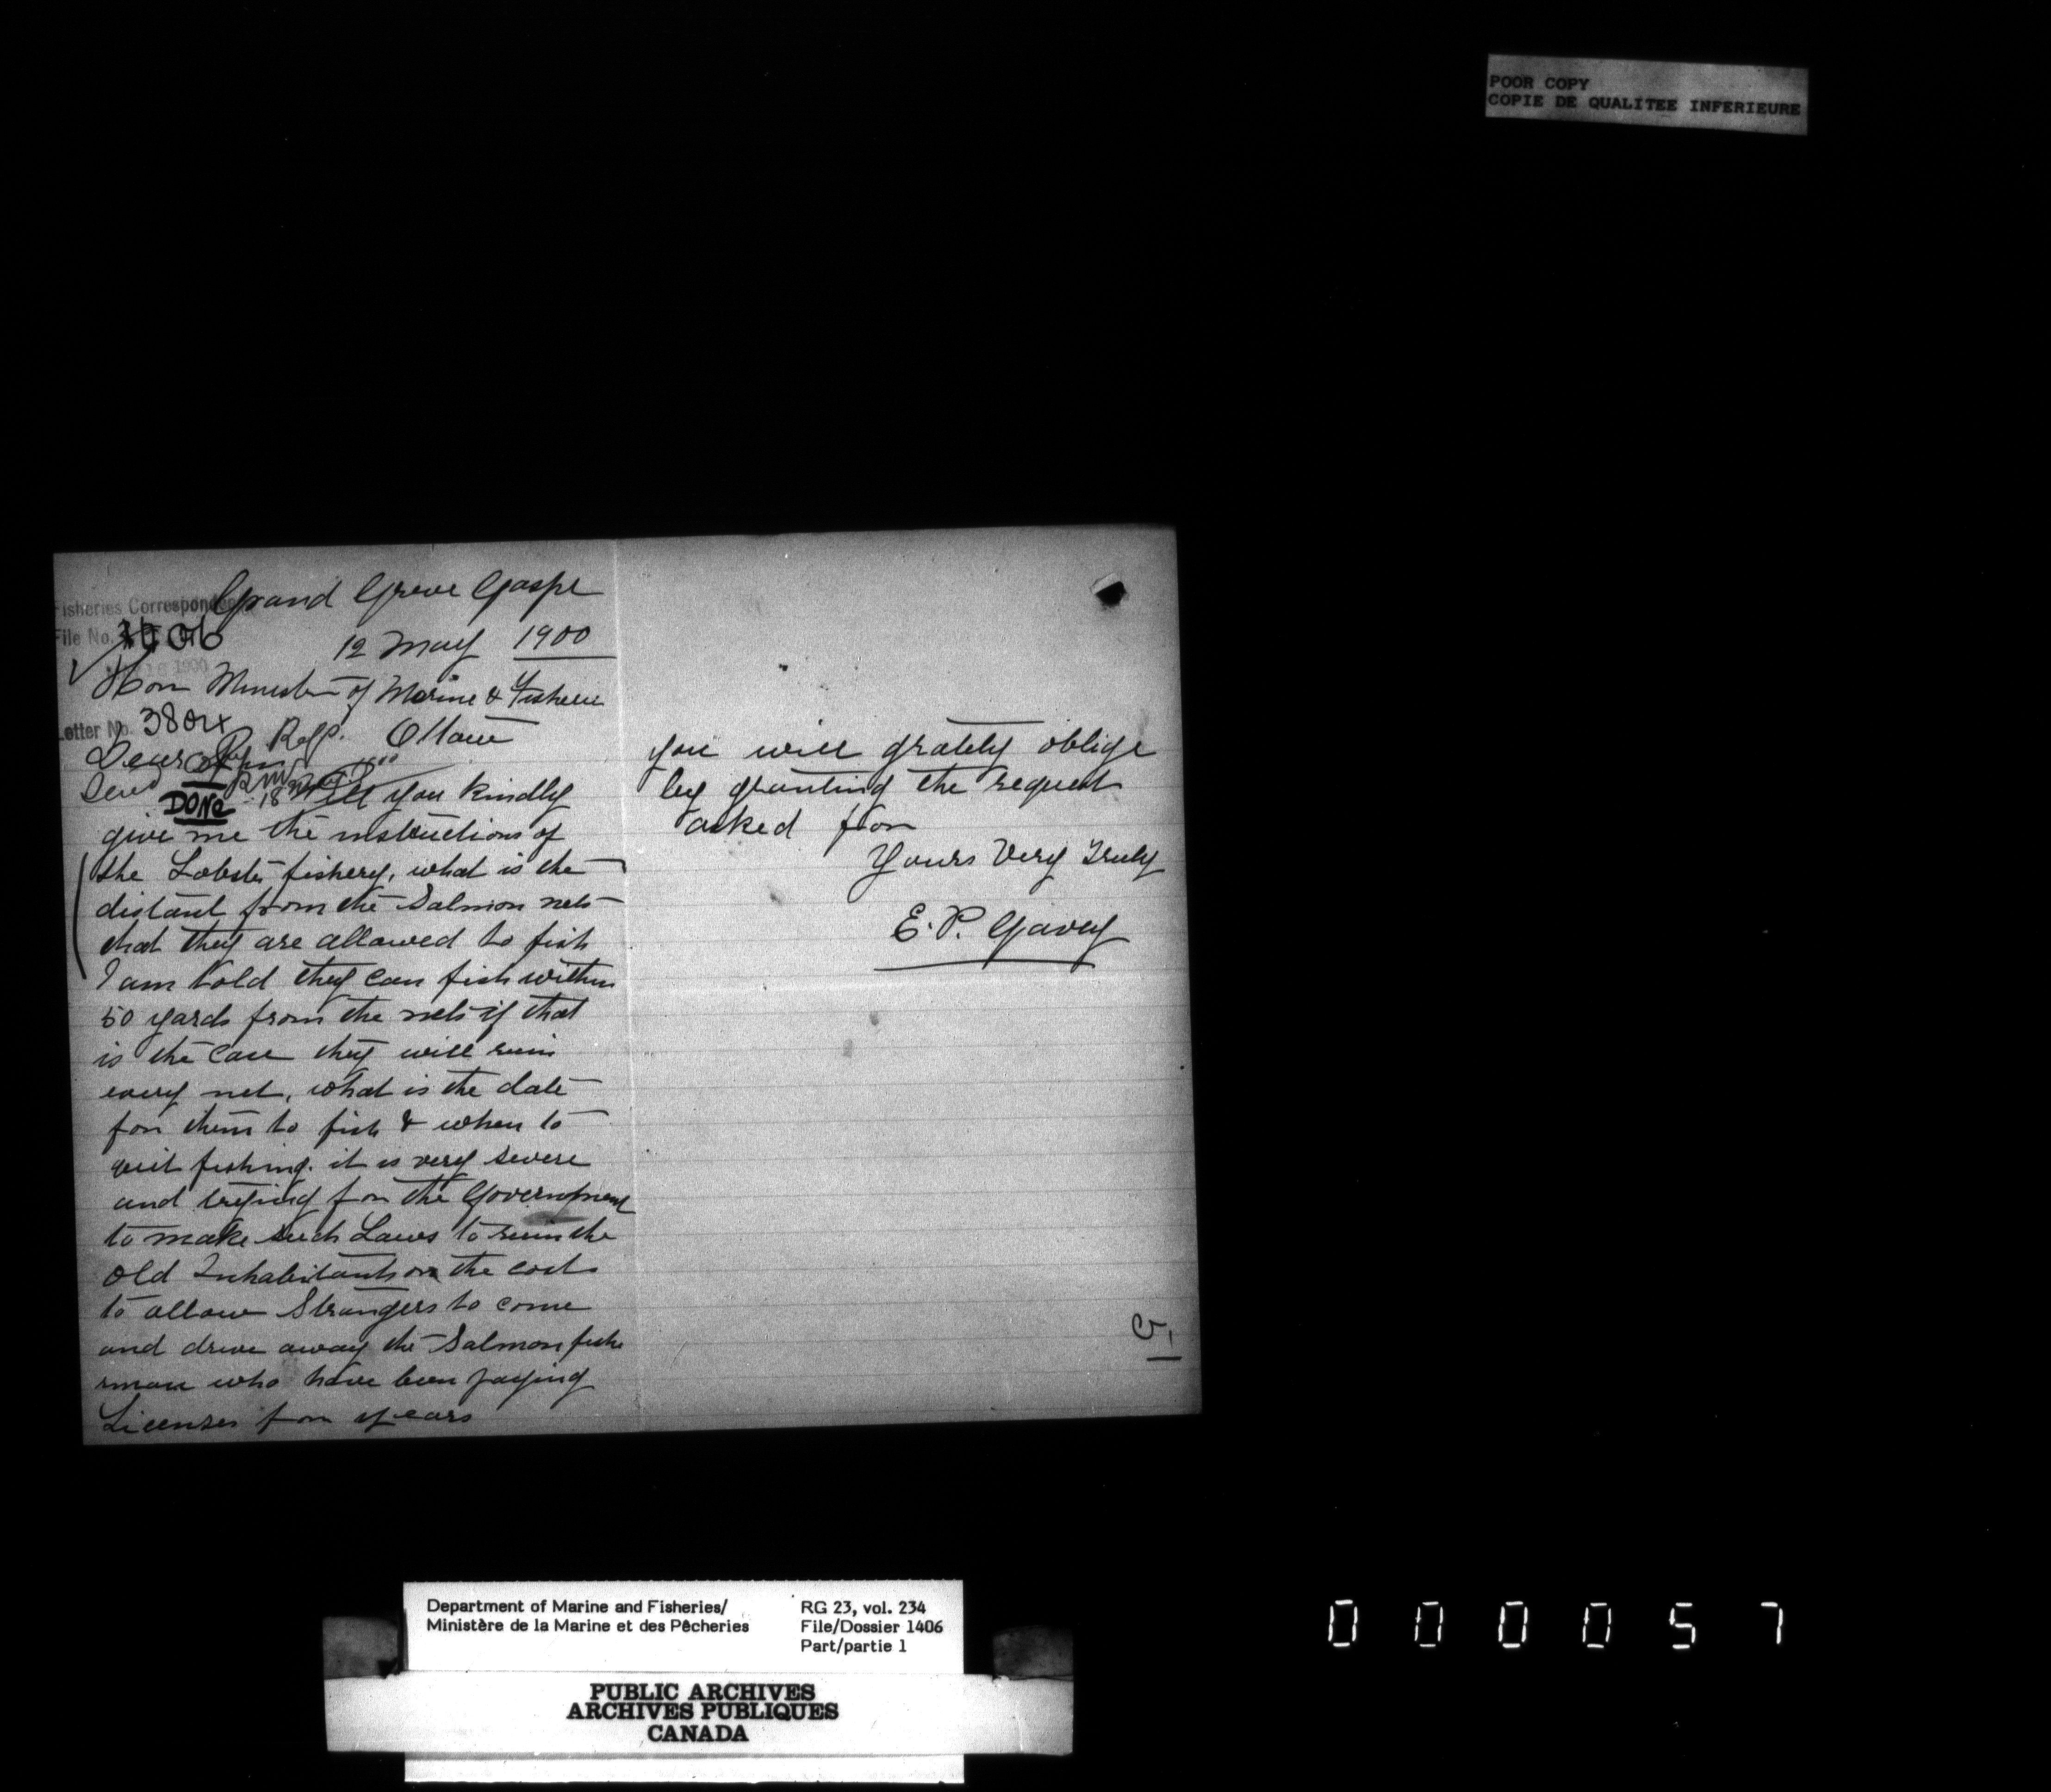 POOR COPY
COPIE DE QUALITEE INFERIEURE
Grand Greve Gaspe
Fisheries Correspondence
File No. 1406
12 May 1900
Hon Minister of Marine & Fisheries
Letter No. 3804
Ottawa
Dear Sir
Send
DONE
Will you kindly
give me the instructions of
the Lobster fishery, what is the
distant from the Salmon nets
that they are allowed to fish
I am told they can fish within
50 yards from the nets if that
is the case they will ruin
every net, what is the date
for them to fish & when to
quit fishing. it is very severe
and trying for the Government
to make such Laws to ruin the
old Inhabitants on the costs
to allow Strangers to come
and drive away the Salmon fishe
rman who have been paying
Licenses for years
you will grately oblige
by granting the request
asked for
Yours Very Truly
E. P. Gavey
Department of Marine and Fisheries/
Ministère de la Marine et des Pêcheries
RG 23, vol. 234
File/Dossier 1406
Part/partie 1
PUBLIC ARCHIVES
ARCHIVES PUBLIQUES
CANADA
000057